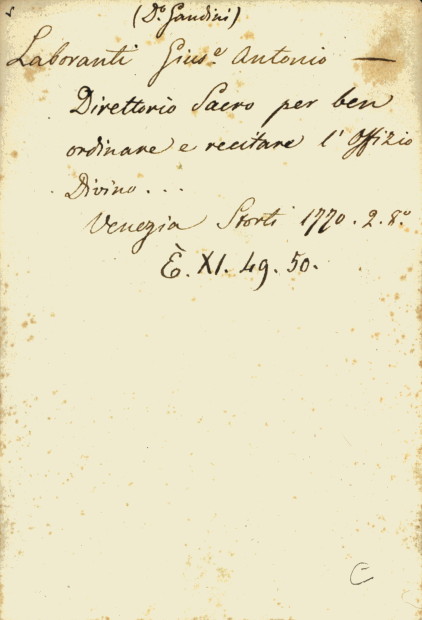 (D.º Gandini)
Laboranti Gius.e Antonio —
Direttorio Sacro per ben
ordinare e recitare l'Offizio
Divino...
Venezia Storti 1770. 2. 8.º
È. XI. 49. 50.
C